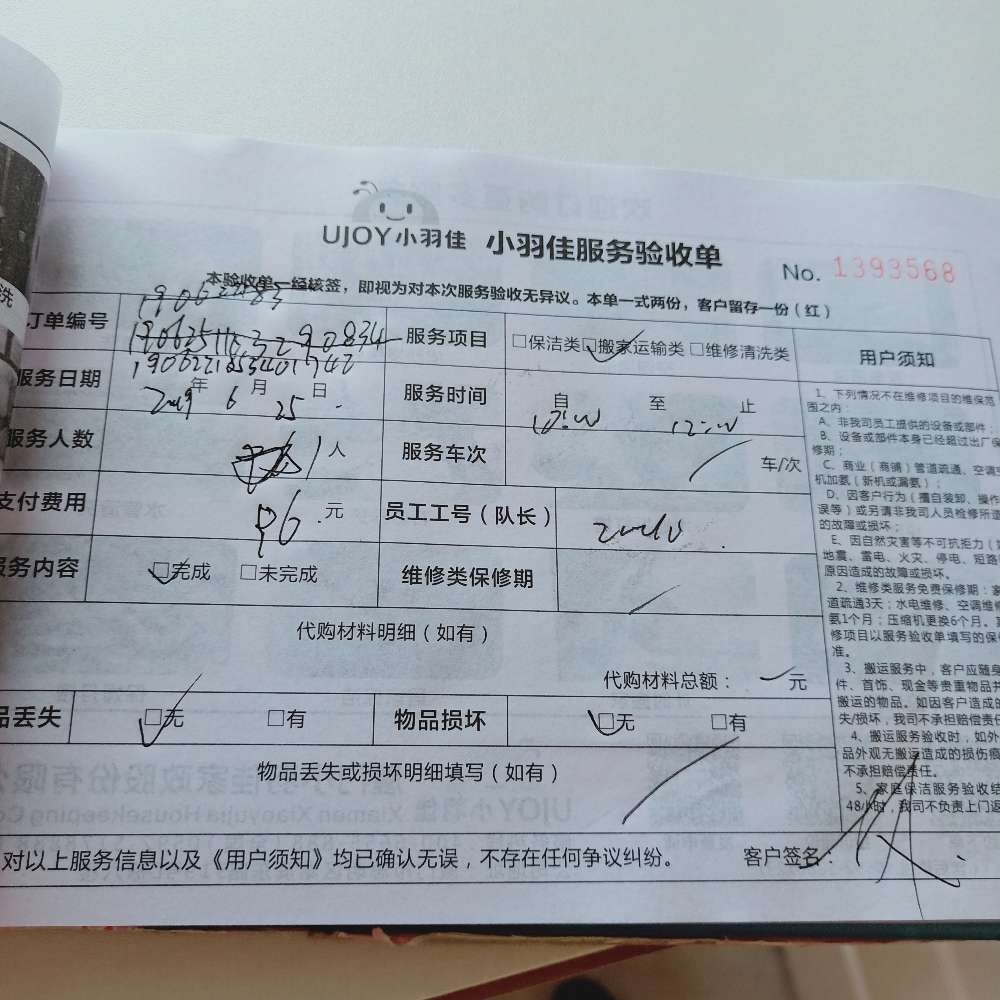 洗
UJOY小羽佳 小羽佳服务验收单
No. 1393568
本验收单一经核签，即视为对本次服务验收无异议。本单一式两份，客户留存一份（红）
订单编号
服务项目 □保洁类 □搬家运输类 □维修清洗类
服务日期 2019年6月25日
服务时间 自 至 12:00 止
服务人数 1人
服务车次 车/次
支付费用 96.元
员工工号（队长）
服务内容 □完成 □未完成
维修类保修期
代购材料明细（如有）
代购材料总额： 元
品丢失 □无 □有
物品损坏 □无 □有
物品丢失或损坏明细填写（如有）
对以上服务信息以及《用户须知》均已确认无误，不存在任何争议纠纷。
客户签名：
用户须知
1、下列情况不在维修项目的维保范
围之内：
A、非我司员工提供的设备或部件；
B、设备或部件本身已经超过出厂保
修期；
C、商业（商铺）管道疏通、空调
机加氨（新机或漏氨）；
D、因客户行为（擅自装卸、操作
误等）或另请非我司人员检修所造
的故障或损坏；
E、因自然灾害等不可抗拒力（
地震、雷电、火灾、停电、短路
原因造成的故障或损坏。
2、维修类服务免费保修期：
道疏通3天；水电维修、空调维修
氨1个月；压缩机更换6个月。
修项目以服务验收单填写的保
准。
3、搬运服务中，客户应随身
件、首饰、现金等贵重物品并
搬运的物品。如因客户造成的
失/损坏，我司不承担赔偿责任
4、搬运服务验收时，如外
品外观无搬运造成的损伤痕
不承担赔偿责任。
5、家庭保洁服务验收结
48小时，我司不负责上门返